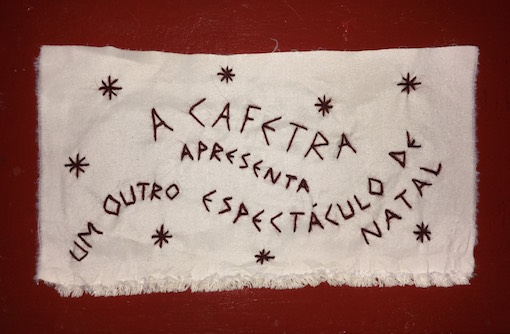 A CAFETRA
APRESENTA
UM OUTRO ESPECTÁCULO DE
NATAL